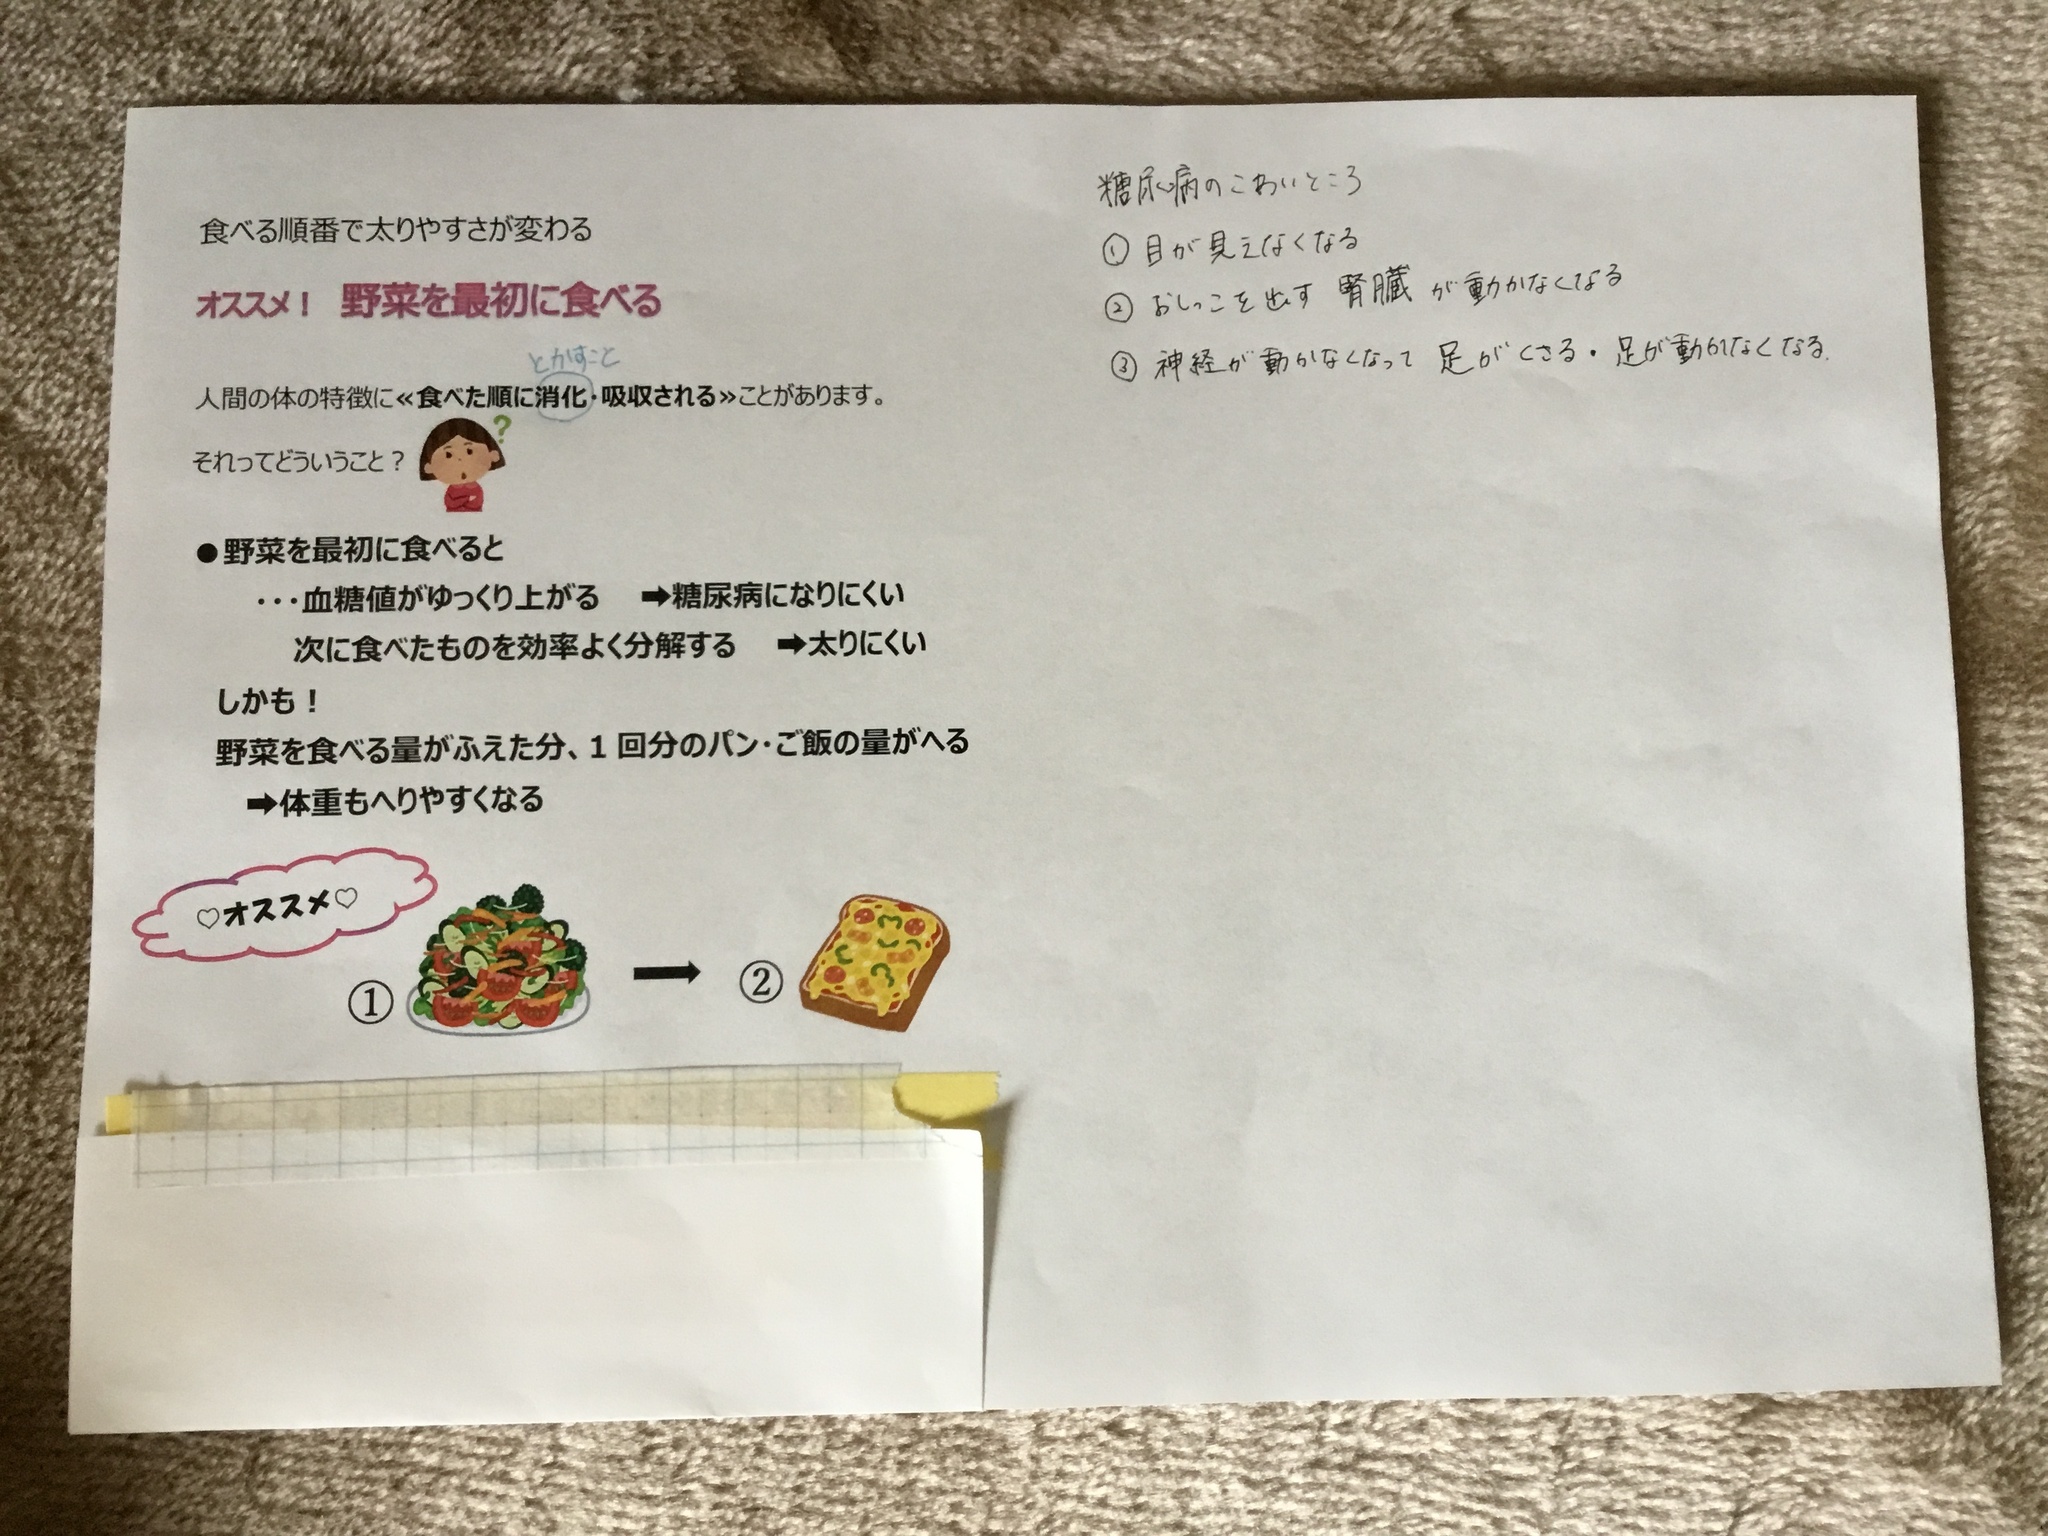 食べる順番で太りやすさが変わる
オススメ！ 野菜を最初に食べる
とかすこと
人間の体の特徴に≪食べた順に消化・吸収される≫ことがあります。
それってどういうこと？
?
●野菜を最初に食べると
・・・血糖値がゆっくり上がる ➡糖尿病になりにくい
次に食べたものを効率よく分解する ➡太りにくい
しかも！
野菜を食べる量がふえた分、1 回分のパン・ご飯の量がへる
➡体重もへりやすくなる
♡オススメ♡
① → ②
糖尿病のこわいところ
① 目が見えなくなる
② おしっこを出す 腎臓 が動かなくなる
③ 神経が動かなくなって 足がくさる・足が動かなくなる.